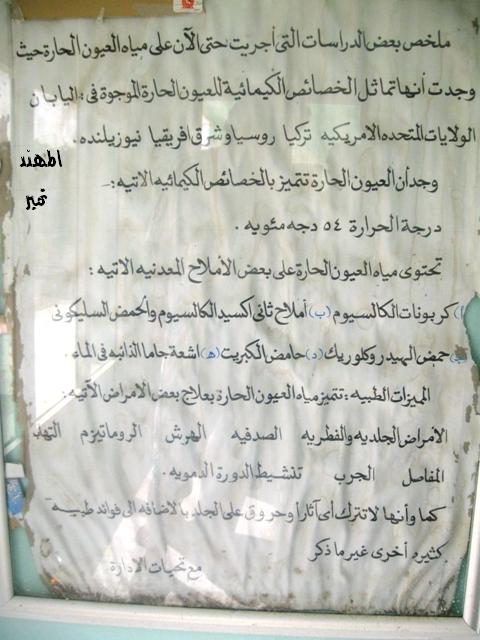 ملخص بعض الدراسات التى أجريت حتى الآن على مياه العيون الحارة حيث
وجدت أنها تماثل الخصائص الكيمائية للعيون الحارة الموجوة فى : اليابان
الولايات المتحده الامريكيه تركيا روسيا وشرق افريقيا نيوزيلنده .
المهند
وجد أن العيون الحارة تتميز بالخصائص الكيمائيه الاتيه :-
نمير
درجة الحرارة ٥٤ دجه مئويه .
تحتوى مياه العيون الحارة على بعض الأملاح المعدنيه الاتيه :
(أ) كربونات الكالسيوم (ب) أملاح ثانى اكسيد الكالسيوم والحمض السليكونى
(ج) حمض الهيدروكلوريك (د) حامض الكبريت (ه) اشعة جاما الذائبه فى الماء .
المميزات الطبيه : تتميز مياه العيون الحارة بعلاج بعض الامراض الآتيه :
الأمراض الجلديه والفطريه الصدفيه الهرش الروماتيزم التهاب
المفاصل الجرب تنشيط الدورة الدمويه .
كما وأنها لا تترك أى آثارا وحروق على الجلد بالاضافه الى فوائد طبيه
كثيره أخرى غير ما ذكر
مع تحيات الادارة